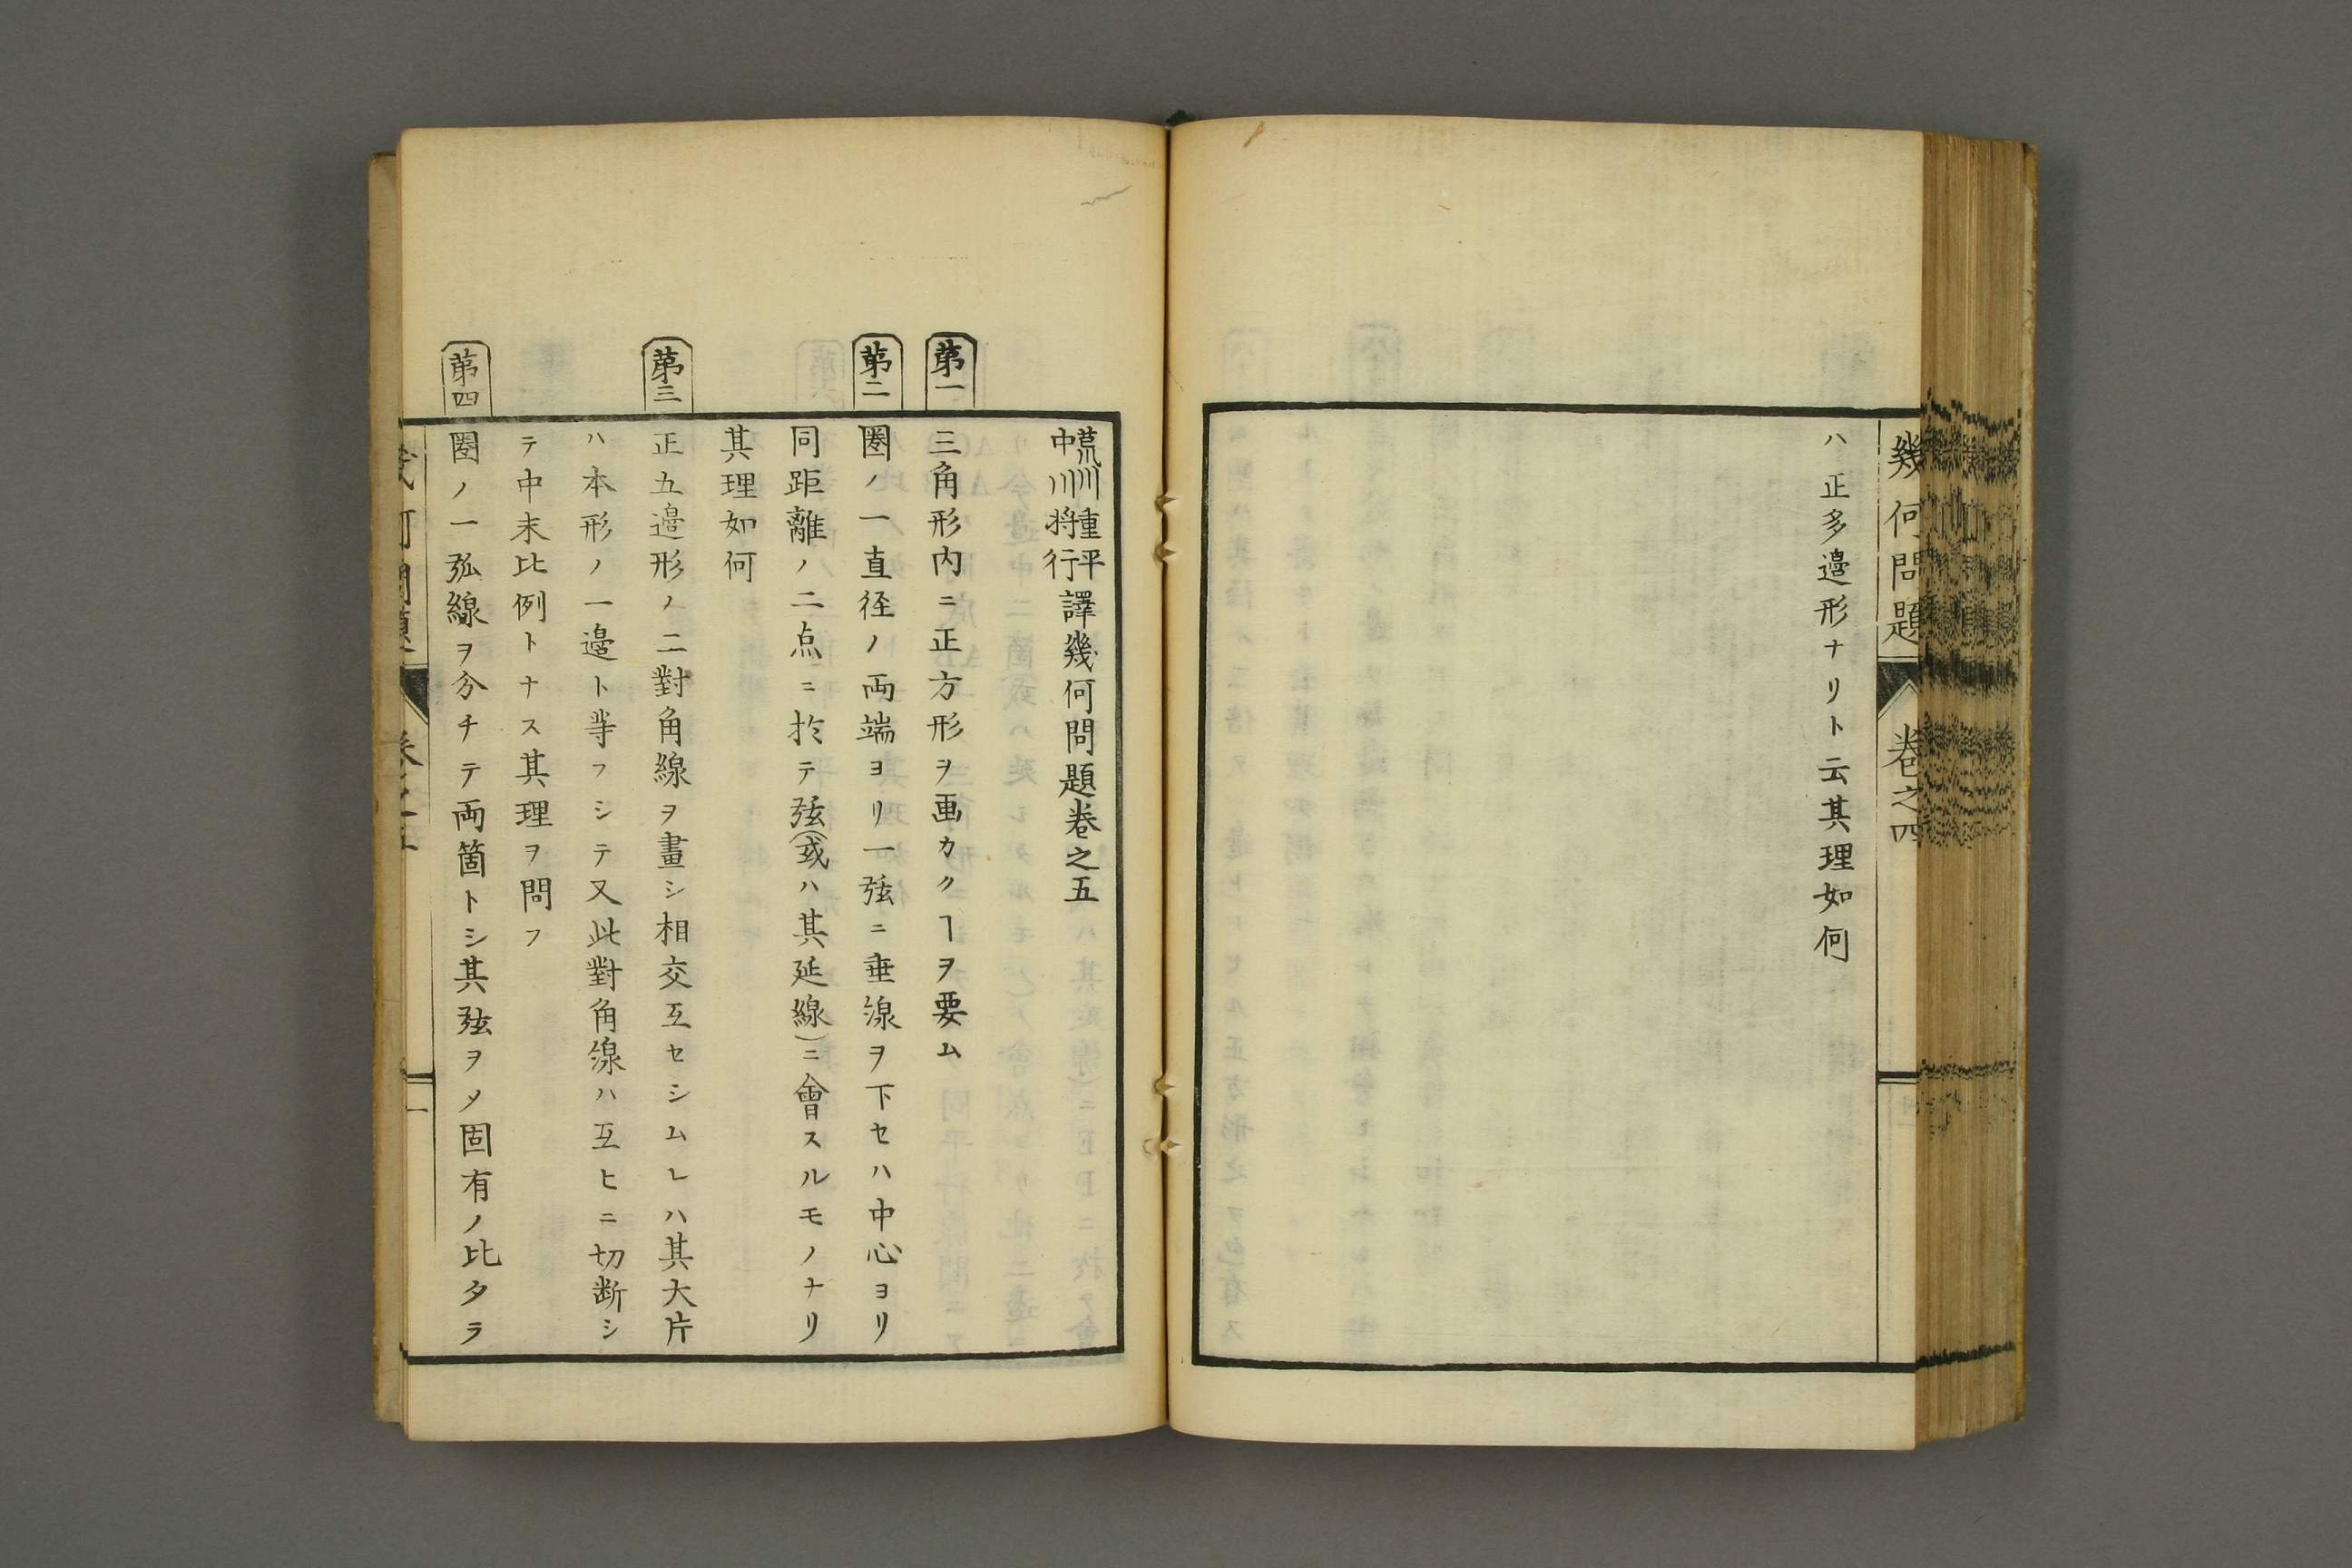 幾何問題 卷之四
ハ正多邉形ナリト云其理如何
荒川重平
中川将行
譯幾何問題卷之五
第一
三角形内ニ正方形ヲ画カクヿヲ要ム
第二
圏ノ一直徑ノ両端ヨリ一弦ニ垂線ヲ下セハ中心ヨリ
同距離ノ二点ニ於テ弦(或ハ其延線)ニ會スルモノナリ
其理如何
第三
正五邉形ノ二對角線ヲ畫シ相交互セシムレハ其大片
ハ本形ノ一邉ト等フシテ又此對角線ハ互ヒニ切断シ
テ中末比例トナス其理ヲ問フ
第四
圏ノ一弧線ヲ分チテ両箇トシ其弦ヲメ固有ノ比タラ
幾何問題 卷之五
一